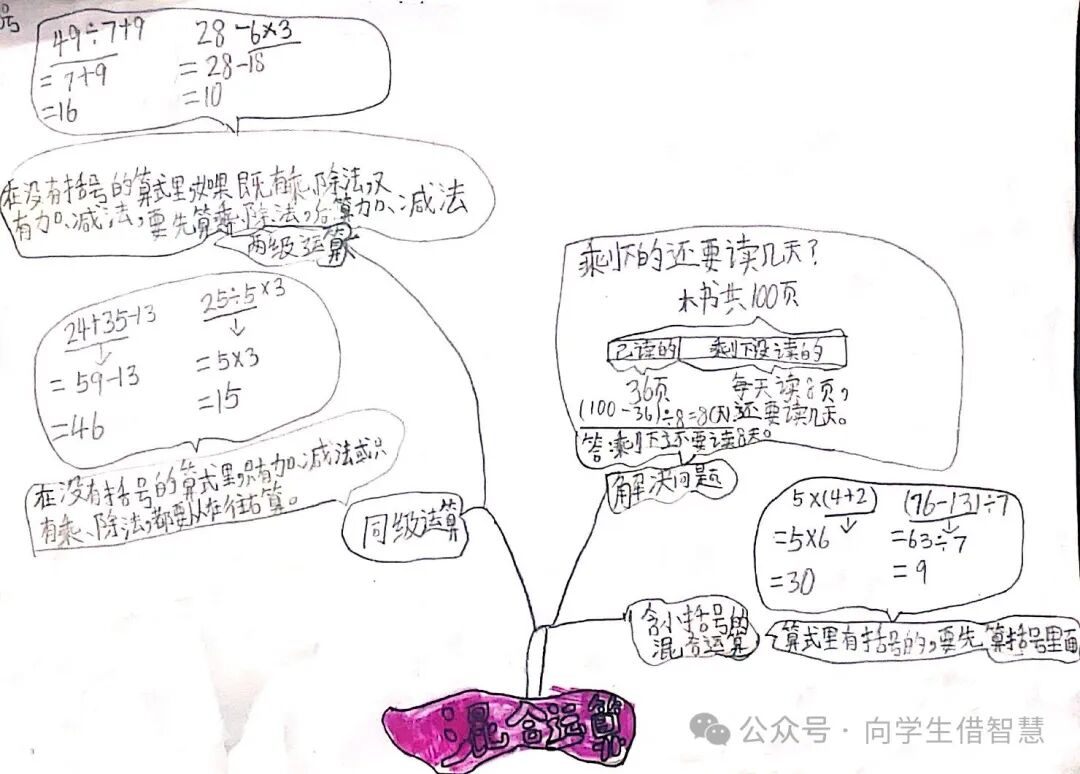 号
49÷7+9
=7+9
=16
28-6×3
=28-18
=10
在没有括号的算式里,如果既有乘、除法,又
有加、减法,要先算乘、除法,后算加、减法
两级运算
24+35-13
=59-13
=46
25÷5×3
=5×3
=15
在没有括号的算式里,只有加、减法或只
有乘、除法,都要从左往右算。
同级运算
剩下的还要读几天?
本书共100页
已读的 剩下没读的
36页 每天读8页,
(100-36)÷8=8(天)还要读几天。
答:剩下还要读8天。
解决问题
5×(4+2)
=5×6
=30
(76-13)÷7
=63÷7
=9
含小括号的
混合运算
算式里有括号的,要先算括号里面
混合运算
公众号·向学生借智慧